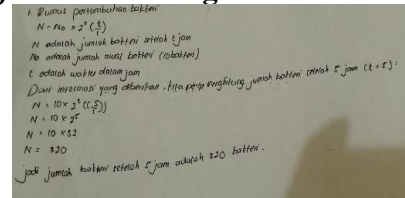 1. Rumus pertumbuhan bakteri
N = N₀ × 2^(t/1)
N adalah jumlah bakteri setelah t jam
No adalah jumlah awal bakteri (10 bakteri)
t adalah waktu dalam jam
Dari informasi yang diberikan, kita perlu menghitung jumlah bakteri setelah 5 jam (t = 5) :
N = 10 × 2^((5/1))
N = 10 × 2⁵
N = 10 × 32
N = 320
jadi jumlah bakteri setelah 5 jam adalah 320 bakteri.